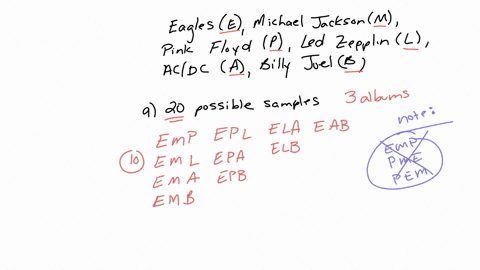 Eagles (E), Michael Jackson (M),
Pink Floyd (P), Led Zepplin (L),
AC/DC (A), Billy Joel (B)
a) 20 possible samples 3 albums
EmP EPL ELA EAB
10 EmL EPA ELB
EMA EPB
EMB
note:
EmP
PME
PEM